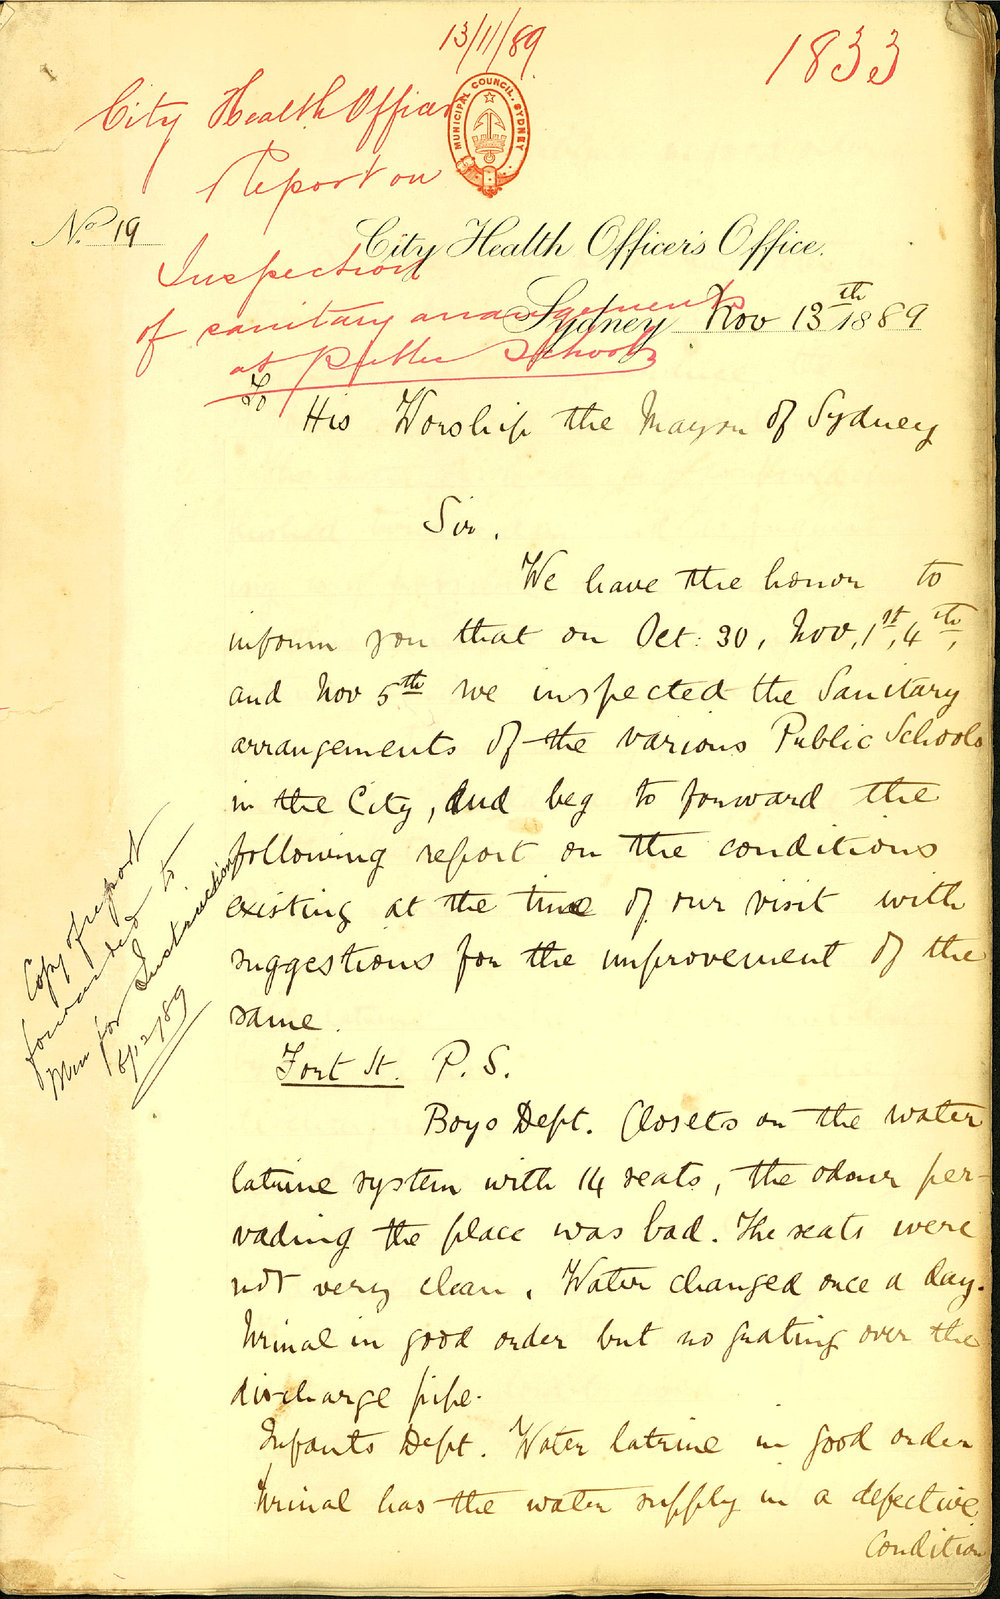 13/11/89
1833
City Health Officer
Report on
MUNICIPAL COUNCIL. SYDNEY
No. 19
City Health Officer's Office.
Inspection
of sanitary arrangements
at Public Schools
Sydney Nov 13th 1889
To His Worship the Mayor of Sydney
Sir.
We have the honor to
inform you that on Oct: 30, Nov, 1st, 4th,
and Nov 5th we inspected the Sanitary
arrangements of the various Public Schools
in the City, And beg to forward the
following report on the conditions
existing at the time of our visit with
suggestions for the improvement of the
same.
Copy of report
forwarded to
for Instruction
Fort St. P. S.
Boys Dept. Closets on the water
latrine system with 14 seats, the odour per-
vading the place was bad. The seats were
not very clean. Water changed once a day.
Urinal in good order but no grating over the
discharge pipe.
Infants Dept. Water latrine in good order
Urinal has the water supply in a defective
condition